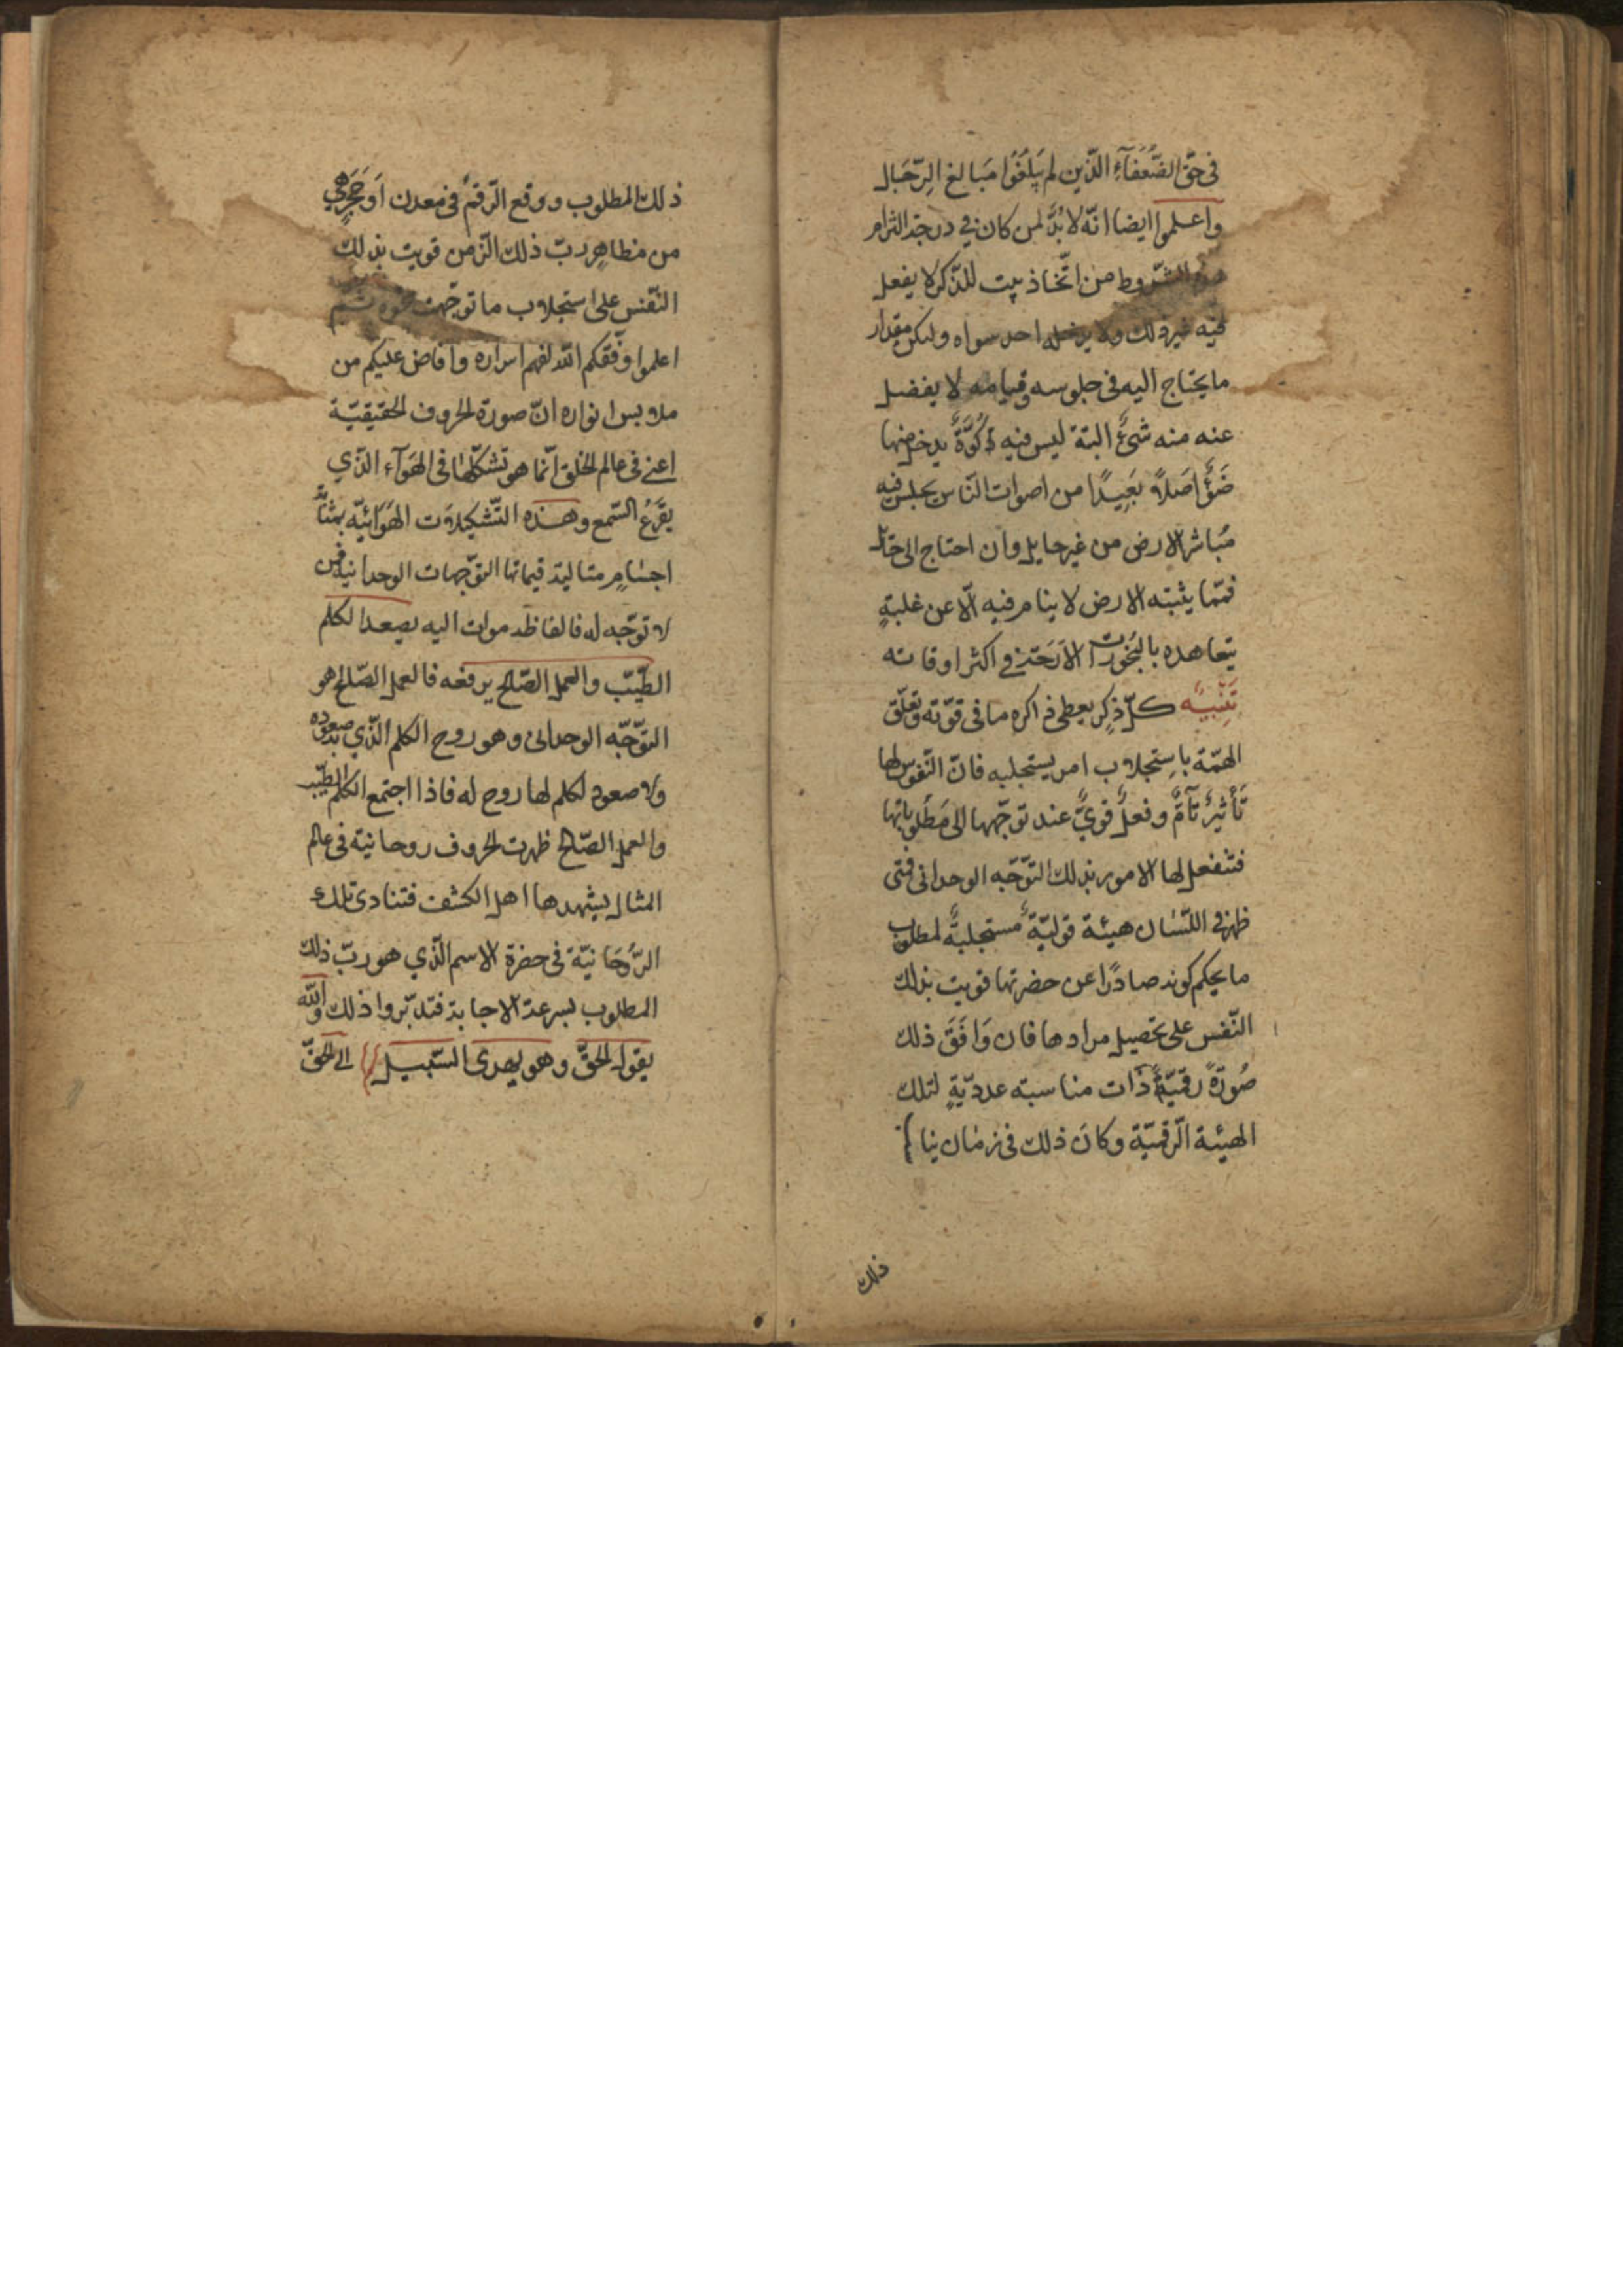 في حقّ الضّعفآءِ الّذين لم يَبلُغوا مَبالغ الرّجَال
واعلموا ايضا انّه لا بُدَّ لمن كان في درجة التزام
الشّروط من اتّخاذ بيت للذّكر لا يفعل
فيه غير ذلك ولا يدخله احد سواه وليكن مقدار
ما يحتاج اليه في جلوسه وقيامه لا يفضل
عنه منه شئٌ البتة ليس فيه كُوَّةٌ يدخل منها
ضَؤْ اصَلاً بَعِيدًا من اصوات النّاس يجلس فيه
مُباشر الارض من غير حايل وان احتاج الى حائل
فممّا يثبته الارض لا ينام فيه الّا عن غلبةٍ
يتعاهده بالبَخُورات الاَرَجة في اكثر اوقاته
تَنْبيه كلّ ذِكرٍ يعطي ذاكره ما في قوّته وتعلّق
الهمّة باستجلاب امر يستجلبه فانّ النّفوس لها
تَأثيرٌ تآمٌّ وفعلٌ قويٌّ عند توجّهها الى مَطلُوباتها
فتنفعل لها الامور بذلك التّوجّه الوحداني فمتى
ظهر في اللّسان هيئة قوليّةٌ مستجلبةٌ لمطلوب
ما يحكم كونه صادرًا عن حضرتها قويت بذلك
النّفس على تحصيل مرادها فان وَافَقَ ذلك
صُورَةً رقميّةً ذات مناسبته عدديّةٍ لتلك
الهيئة الرّقميّة وكانَ ذلك في زمان
ذلك
ذلك المطلوب ووقع الرّقمُ في معدن اَو حَجَرٍ هي
من مظاهِر ربّ ذلك الزّمن قويت بذلك
النّفس على استجلاب ما توجّهت نحوه ثم
اعلموا وفّقكم الله لفهم اسراره وافاض عليكم من
ملابس انواره انّ صورة الحروف الحقيقيّة
اعني في عالم الخلق انّما هو تشكّلها في الهَوَآء الّذي
يقْرَعُ السّمع وهذه التّشكيلاَت الهَوَائيّه بمثابة
اجسامٍ مثالية قيماتها التّوجّهات الوحدانية فمن
لا توجّه له فالفاظه موات اليه يصعد الكلم
الطّيّب والعمل الصّالح يرفعه فالعمل الصّالح هو
التّوجّه الوحداني وهو روح الكلم الّذي به صعوده
ولا صعود لكلم لها روح له فاذا اجتمع الكلم الطّيّب
والعمل الصّالح ظهرت الحروف روحانية في عالم
المثال يشهدها اهل الكشف فتنادى تلك
الرُّوحَانيّة في حضرة الاسم الّذي هو ربّ ذلك
المطلوب بسرعة الاجابة فتدبّروا ذلك والله
يقول الحقّ وهو يهدى السّبيل الى الحقّ